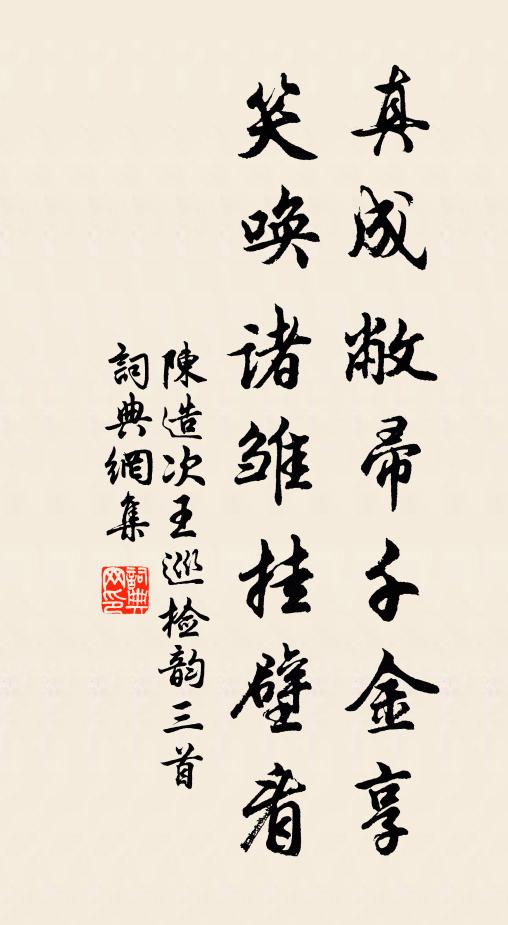 真成敝帚千金享
笑唤诸雏挂壁看
陳造次王巡检韵三首
詞典網集
詞典网印